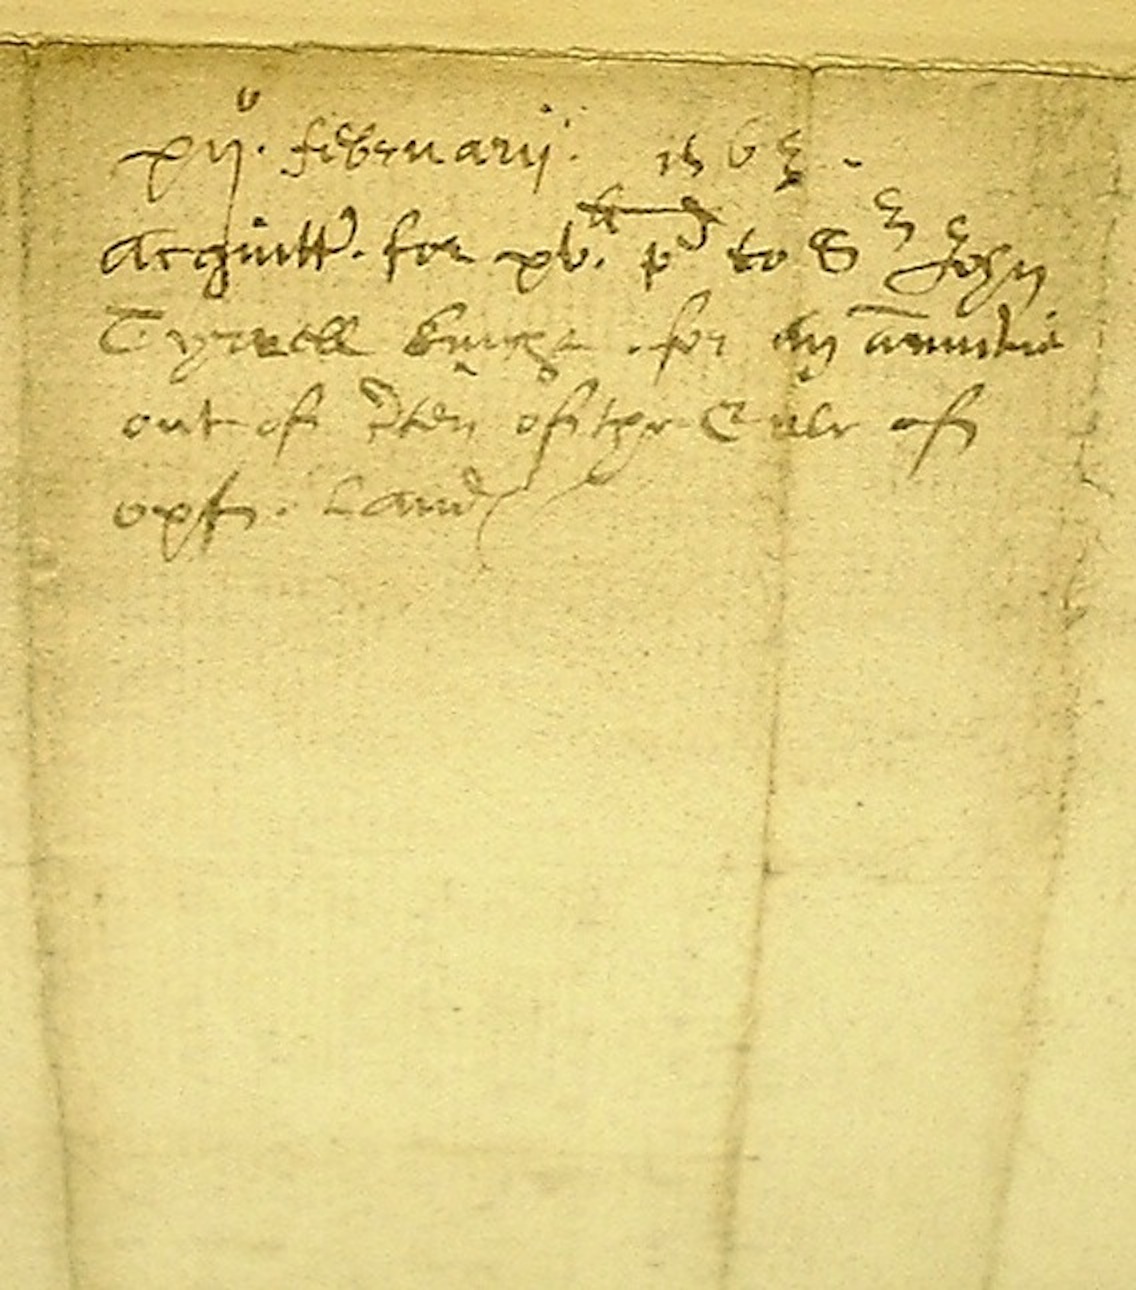 xijº. februarij. 156
Acquitt. for xv. pd to Sr John
Tyrrell knight for an annuitie
out of of the Erle of
oxf. Land